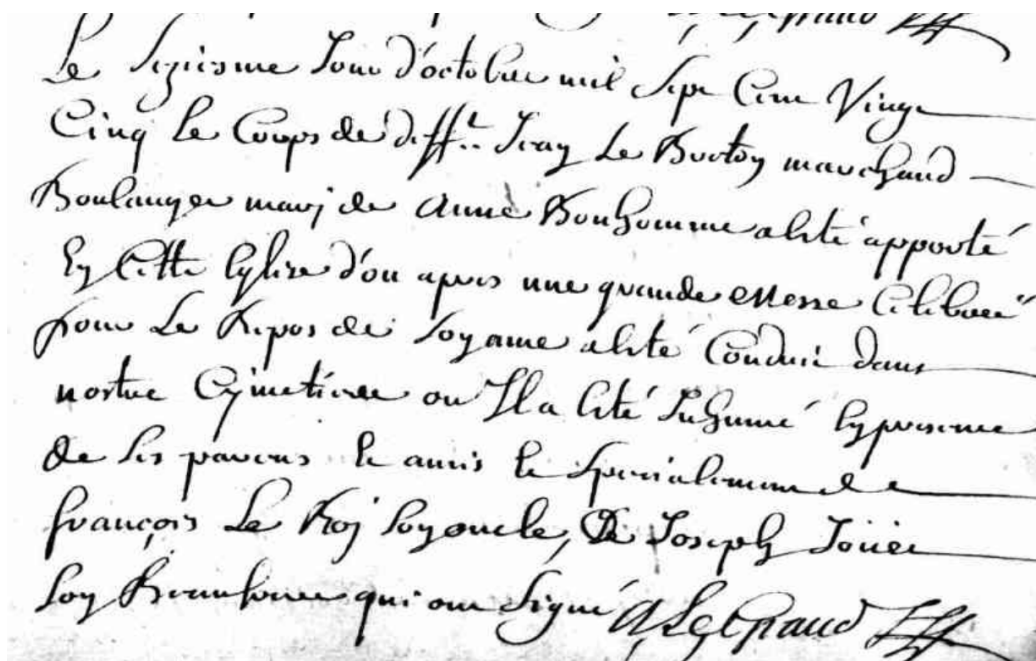 Le Grand
Le Seziesme Jour d'octobre mil Sept Cent Vingt
Cinq le Corps de deff.t Jean Le Breton marchand
Boulanger mary de Anne Bonhomme a esté apporté
En Cette Eglise d'ou apres une grande Messe Celebreé
pour Le Repos de Son ame a esté Conduit dans
nostre Cymetiere ou Il a esté Inhumé En presence
de Ses parens et amis et Specialement de
françois Le Roy Son oncle, De Joseph
Son Beaufrere qui ont Signé A Le Grand